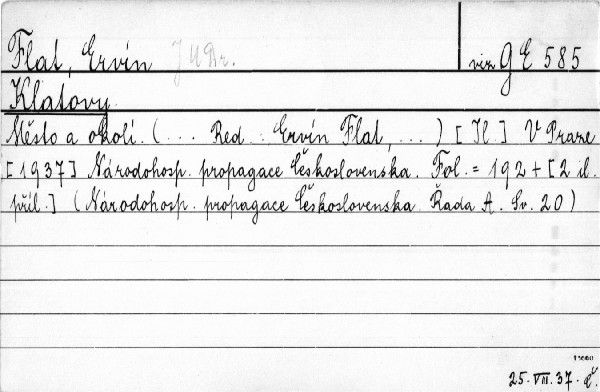 Flat, Ervín JUDr. viz GE 585
Klatovy.
Město a okolí. (... Red.: Ervín Flat, ...) [Il.] V Praze
[1937] Národohosp. propagace Československa. Fol. = 192 + [2 il.
příl.] (Národohosp. propagace Československa. Řada A. Sv. 20)
25.VII.37. č.